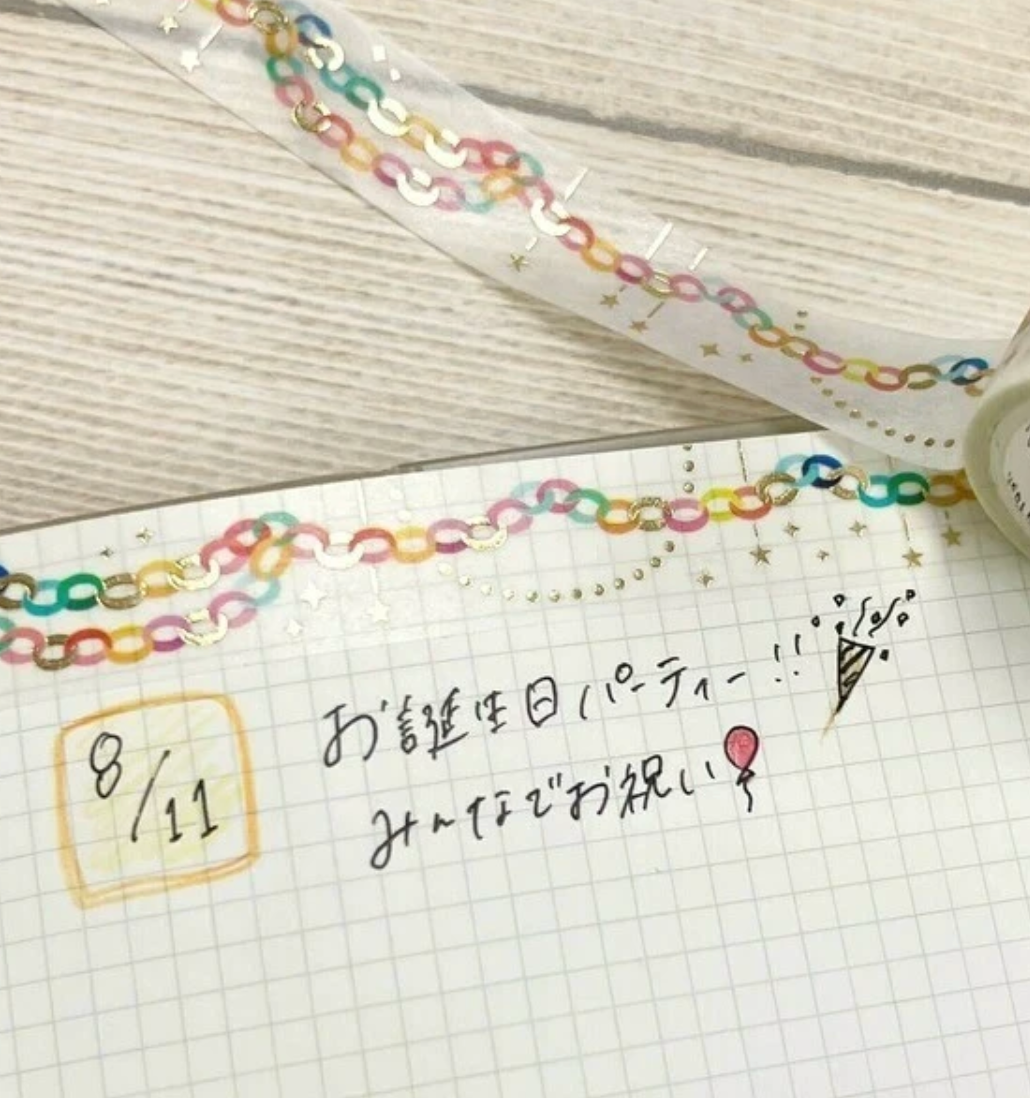 8/11
お誕生日パーティー!!
みんなでお祝い